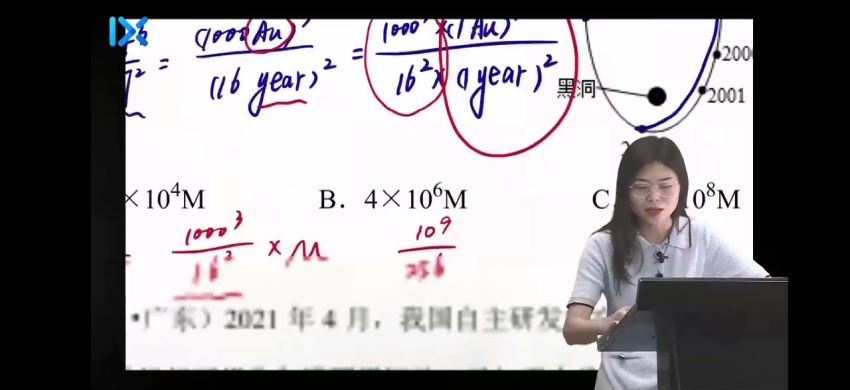 = (1000 Au)³ / (16 year)² = 1000³ × (1 Au)³ / 16² × (1 year)²
200
黑洞
2001
×10⁴M B. 4×10⁶M C 0⁸M
1000³ / 16² × M 10⁹ / 256
广东）2021 年 4 月，我国自主研发